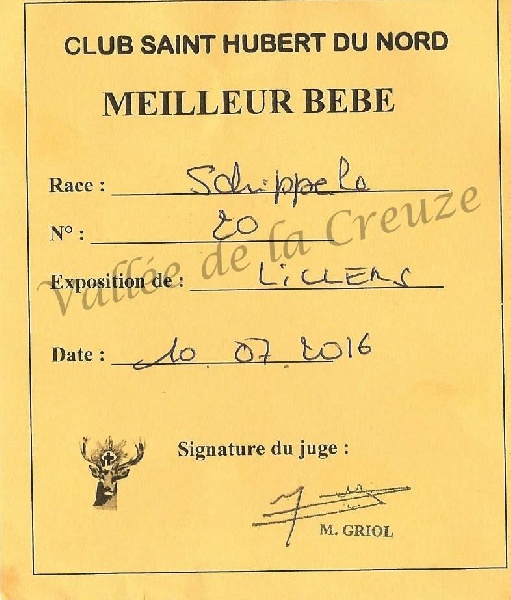 CLUB SAINT HUBERT DU NORD
MEILLEUR BEBE
Race : Schippele
N° : 20
Exposition de : LiLLERS
Vallée de la Creuze
Date : 10.07.2016
Signature du juge :
M. GRIOL